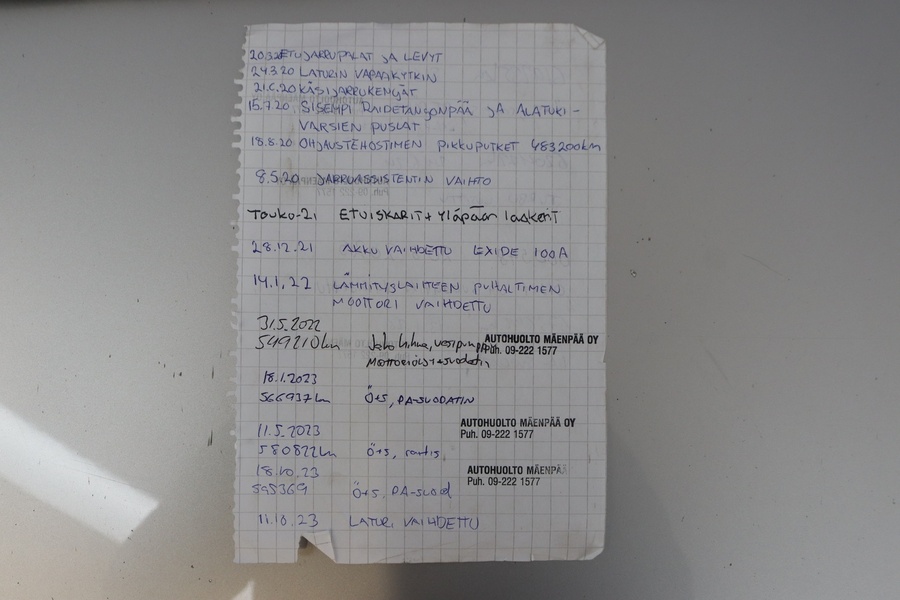 20.3.20 ETUJARRUPALAT JA LEVYT
24.3.20 LATURIN VAPAAKYTKIN
21.6.20 KÄSIJARRUKENGÄT
15.7.20 SISEMPI RAIDETANGONPÄÄ JA ALATUKI-
VARSIEN PUSLAT
18.8.20 OHJAUSTEHOSTIMEN PIKKUPUTKET 483200km
8.5.20 JARRUASSISTENTIN VAIHTO
Touko-21 ETUISKARIT + Yläpään laakerit
28.12.21 AKKU VAIHDETTU EXIDE 100A
14.1.22 LÄMMITYSLAITTEEN PUHALTIMEN
MOOTTORI VAIHDETTU
31.5.2022
549210km Jakohihna, vesipumppu AUTOHUOLTO MÄENPÄÄ OY
Puh. 09-222 1577
Moottoriöljyt+suodatin
18.1.2023
566937km Ö+S, PA-SUODATIN
11.5.2023 AUTOHUOLTO MÄENPÄÄ OY
Puh. 09-222 1577
580822km Ö+S,
18.10.23 AUTOHUOLTO MÄENPÄÄ
Puh. 09-222 1577
595369 Ö+S, PA-suod
11.10.23 LATURI VAIHDETTU